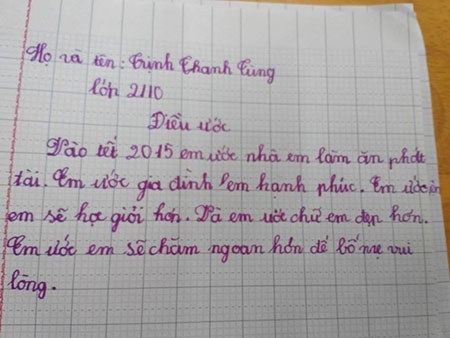 Họ và tên: Trịnh Thanh Tùng
lớp 2/10
Điều ước
Vào tết 2015 em ước nhà em làm ăn phát
tài. Em ước gia đình em hạnh phúc. Em ước
em sẽ học giỏi hơn. Và em ước chữ em đẹp hơn.
Em ước em sẽ chăm ngoan hơn để bố mẹ vui
lòng.